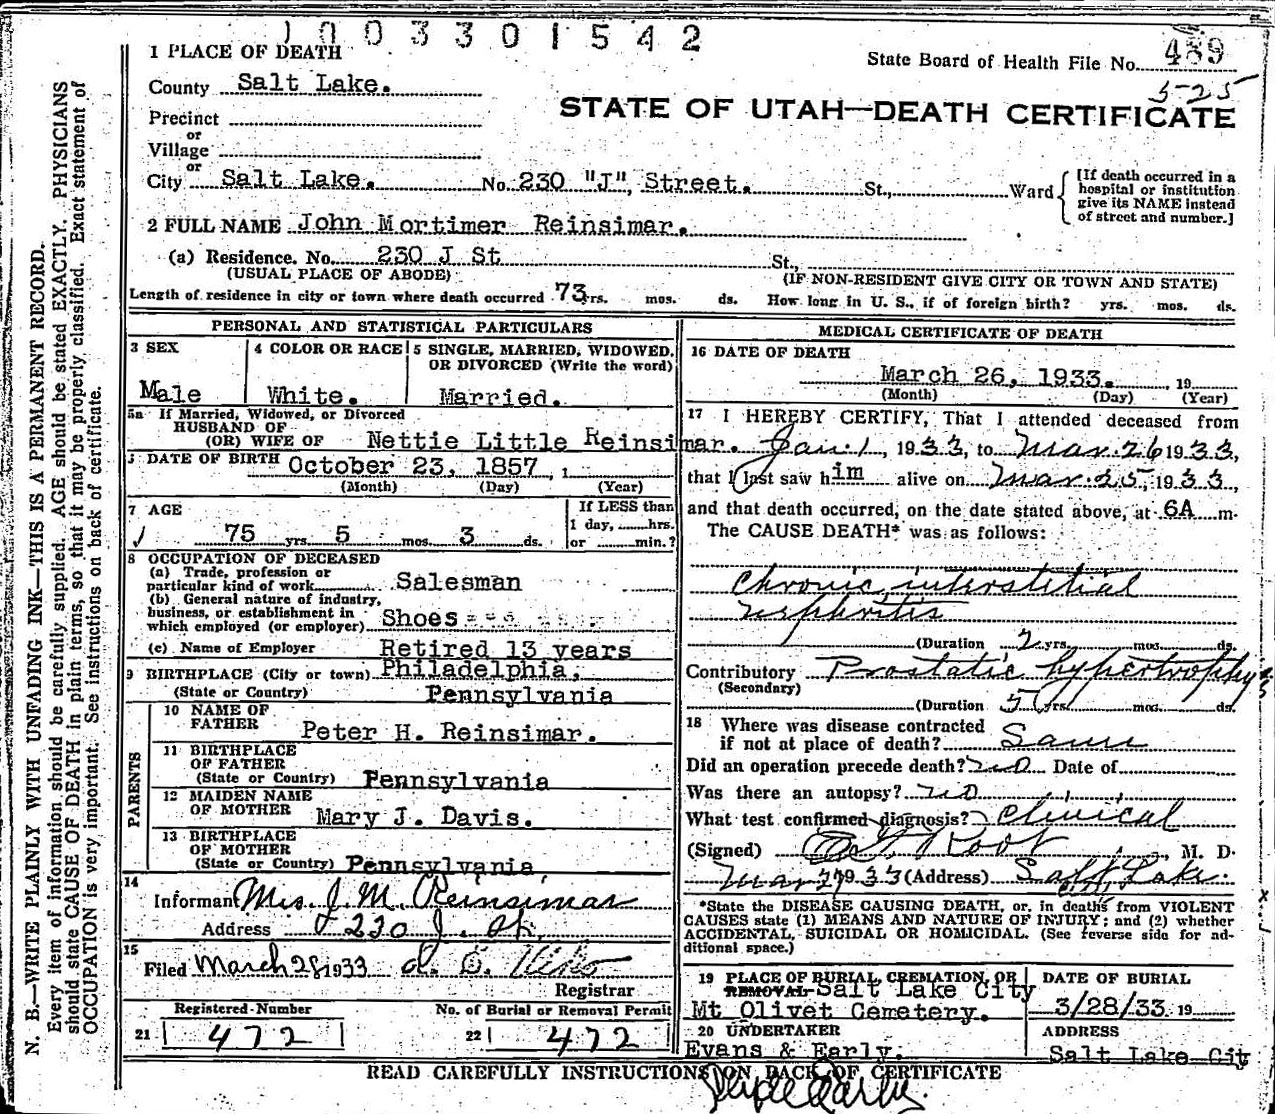 1003301542
1 PLACE OF DEATH
State Board of Health File No. 489
5-25
County Salt Lake.
STATE OF UTAH—DEATH CERTIFICATE
Precinct
or
Village
or
City Salt Lake. No. 230 "J", Street. St., Ward
[If death occurred in a
hospital or institution
give its NAME instead
of street and number.]
2 FULL NAME John Mortimer Reinsimar.
(a) Residence. No. 230 J St St.,
(USUAL PLACE OF ABODE) (IF NON-RESIDENT GIVE CITY OR TOWN AND STATE)
Length of residence in city or town where death occurred 73 yrs. mos. ds. How long in U. S., if of foreign birth? yrs. mos. ds.
PERSONAL AND STATISTICAL PARTICULARS
3 SEX
Male
4 COLOR OR RACE
White.
5 SINGLE, MARRIED, WIDOWED,
OR DIVORCED (Write the word)
Married.
5a If Married, Widowed, or Divorced
HUSBAND OF
(OR) WIFE OF Nettie Little Reinsimar.
DATE OF BIRTH October 23, 1857, 1
(Month) (Day) (Year)
7 AGE
75 yrs. 5 mos. 3 ds.
If LESS than
1 day, hrs.
or min.?
8 OCCUPATION OF DECEASED
(a) Trade, profession or
particular kind of work Salesman
(b) General nature of industry,
business, or establishment in
which employed (or employer) Shoes
(c) Name of Employer Retired 13 years
9 BIRTHPLACE (City or town) Philadelphia,
(State or Country) Pennsylvania
PARENTS
10 NAME OF
FATHER Peter H. Reinsimar.
11 BIRTHPLACE
OF FATHER
(State or Country) Pennsylvania
12 MAIDEN NAME
OF MOTHER Mary J. Davis.
13 BIRTHPLACE
OF MOTHER
(State or Country) Pennsylvania,
14
Informant Mrs. J. M. Reinsimar
Address 230 J. St.
15
Filed March 28 1933
Registrar
Registered Number
21 472
No. of Burial or Removal Permit
22 472
MEDICAL CERTIFICATE OF DEATH
16 DATE OF DEATH
March 26, 1933. , 19
(Month) (Day) (Year)
17 I HEREBY CERTIFY, That I attended deceased from
Jan. 1, 1933, to Mar. 26 1933,
that I last saw him alive on Mar. 25, 1933,
and that death occurred, on the date stated above, at 6A m.
The CAUSE DEATH* was as follows:
Chronic interstitial
nephritis
(Duration 2 yrs. mos. ds.
Contributory Prostatic hypertrophy
(Secondary)
(Duration 5 yrs. mos. ds.
18 Where was disease contracted
if not at place of death? Same
Did an operation precede death? no Date of
Was there an autopsy? no
What test confirmed diagnosis? Clinical
(Signed) Root, M. D.
Mar 27 1933 (Address) Salt Lake City.
*State the DISEASE CAUSING DEATH, or, in deaths from VIOLENT
CAUSES state (1) MEANS AND NATURE OF INJURY; and (2) whether
ACCIDENTAL, SUICIDAL OR HOMICIDAL. (See reverse side for ad-
ditional space.)
19 PLACE OF BURIAL, CREMATION, OR
REMOVAL Salt Lake City
Mt Olivet Cemetery.
DATE OF BURIAL
3/28/33. 19
20 UNDERTAKER
Evans & Early.
ADDRESS
Salt Lake City
READ CAREFULLY INSTRUCTIONS ON BACK OF CERTIFICATE
N. B.—WRITE PLAINLY WITH UNFADING INK—THIS IS A PERMANENT RECORD.
Every item of information should be carefully supplied. AGE should be stated EXACTLY. PHYSICIANS
should state CAUSE OF DEATH in plain terms, so that it may be properly classified. Exact statement of
OCCUPATION is very important. See instructions on back of certificate.